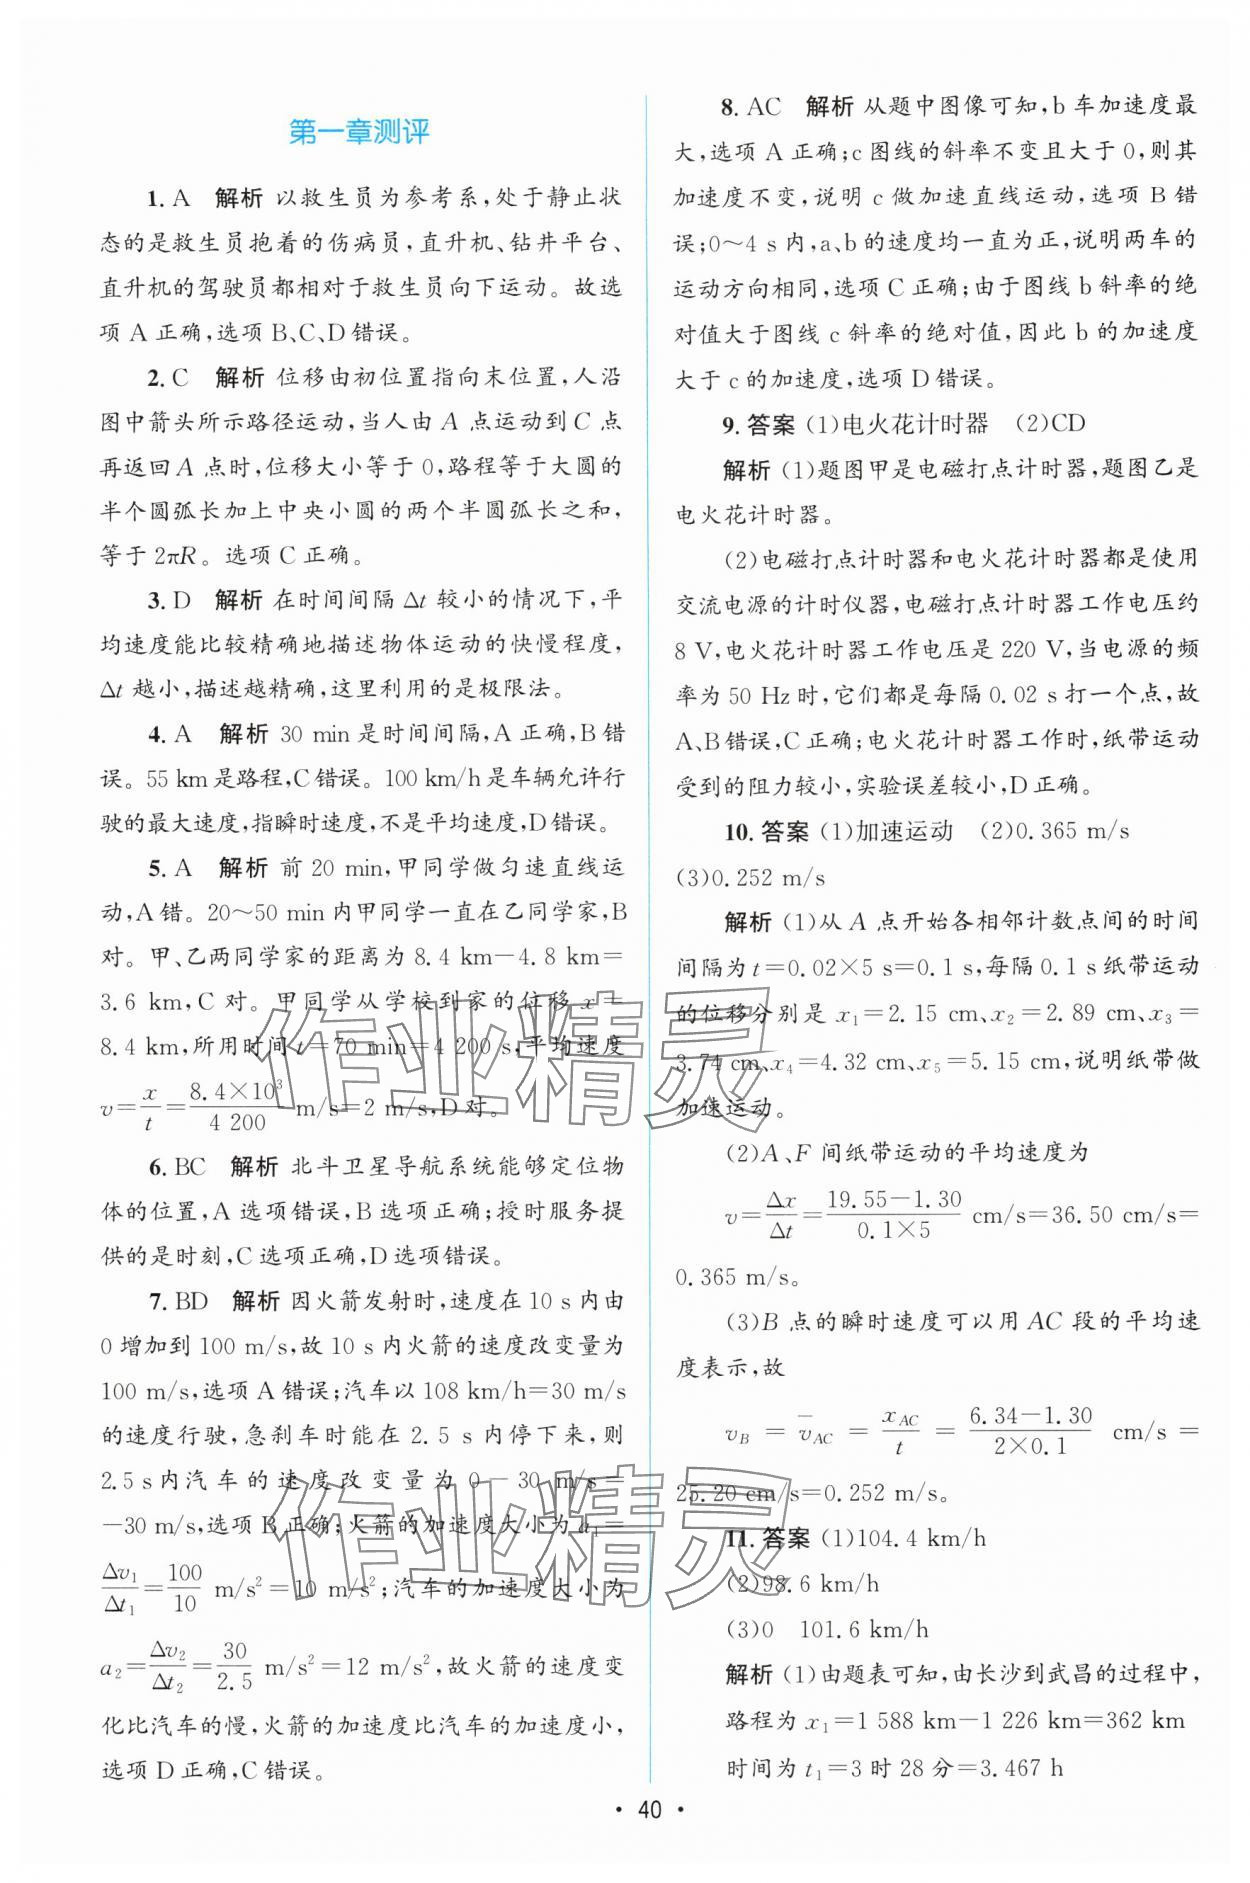 第一章测评
1. A 解析 以救生员为参考系,处于静止状
态的是救生员抱着的伤病员,直升机、钻井平台、
直升机的驾驶员都相对于救生员向下运动。故选
项 A 正确,选项 B、C、D 错误。
2. C 解析 位移由初位置指向末位置,人沿
图中箭头所示路径运动,当人由 A 点运动到 C 点
再返回 A 点时,位移大小等于 0,路程等于大圆的
半个圆弧长加上中央小圆的两个半圆弧长之和,
等于 2πR。选项 C 正确。
3. D 解析 在时间间隔 Δt 较小的情况下,平
均速度能比较精确地描述物体运动的快慢程度,
Δt 越小,描述越精确,这里利用的是极限法。
4. A 解析 30 min 是时间间隔,A 正确,B 错
误。55 km 是路程,C 错误。100 km/h 是车辆允许行
驶的最大速度,指瞬时速度,不是平均速度,D 错误。
5. A 解析 前 20 min,甲同学做匀速直线运
动,A 错。20～50 min 内甲同学一直在乙同学家,B
对。甲、乙两同学家的距离为 8.4 km－4.8 km＝
3.6 km,C 对。甲同学从学校到家的位移 x＝
8.4 km,所用时间 t＝70 min＝4 200 s,平均速度
v＝x/t＝8.4×10³/4 200 m/s＝2 m/s,D 对。
6. BC 解析 北斗卫星导航系统能够定位物
体的位置,A 选项错误,B 选项正确;授时服务提
供的是时刻,C 选项正确,D 选项错误。
7. BD 解析 因火箭发射时,速度在 10 s 内由
0 增加到 100 m/s,故 10 s 内火箭的速度改变量为
100 m/s,选项 A 错误;汽车以 108 km/h＝30 m/s
的速度行驶,急刹车时能在 2.5 s 内停下来,则
2.5 s 内汽车的速度改变量为 0－30 m/s＝
－30 m/s,选项 B 正确;火箭的加速度大小为 a₁＝
Δv₁/Δt₁＝100/10 m/s²＝10 m/s²;汽车的加速度大小为
a₂＝Δv₂/Δt₂＝30/2.5 m/s²＝12 m/s²,故火箭的速度变
化比汽车的慢,火箭的加速度比汽车的加速度小,
选项 D 正确,C 错误。
8. AC 解析 从题中图像可知,b 车加速度最
大,选项 A 正确;c 图线的斜率不变且大于 0,则其
加速度不变,说明 c 做加速直线运动,选项 B 错
误;0～4 s 内,a、b 的速度均一直为正,说明两车的
运动方向相同,选项 C 正确;由于图线 b 斜率的绝
对值大于图线 c 斜率的绝对值,因此 b 的加速度
大于 c 的加速度,选项 D 错误。
9. 答案 (1)电火花计时器 (2)CD
解析 (1)题图甲是电磁打点计时器,题图乙是
电火花计时器。
(2)电磁打点计时器和电火花计时器都是使用
交流电源的计时仪器,电磁打点计时器工作电压约
8 V,电火花计时器工作电压是 220 V,当电源的频
率为 50 Hz 时,它们都是每隔 0.02 s 打一个点,故
A、B 错误,C 正确;电火花计时器工作时,纸带运动
受到的阻力较小,实验误差较小,D 正确。
10. 答案 (1)加速运动 (2)0.365 m/s
(3)0.252 m/s
解析 (1)从 A 点开始各相邻计数点间的时间
间隔为 t＝0.02×5 s＝0.1 s,每隔 0.1 s 纸带运动
的位移分别是 x₁＝2.15 cm、x₂＝2.89 cm、x₃＝
3.74 cm、x₄＝4.32 cm、x₅＝5.15 cm,说明纸带做
加速运动。
(2)A、F 间纸带运动的平均速度为
v＝Δx/Δt＝(19.55－1.30)/(0.1×5) cm/s＝36.50 cm/s＝
0.365 m/s。
(3)B 点的瞬时速度可以用 AC 段的平均速
度表示,故
v_B＝v̄_AC＝x_AC/t＝(6.34－1.30)/(2×0.1) cm/s＝
25.20 cm/s＝0.252 m/s。
11. 答案 (1)104.4 km/h
(2)98.6 km/h
(3)0 101.6 km/h
解析 (1)由题表可知,由长沙到武昌的过程中,
路程为 x₁＝1 588 km－1 226 km＝362 km
时间为 t₁＝3 时 28 分＝3.467 h
作业精灵
作业精灵
· 40 ·